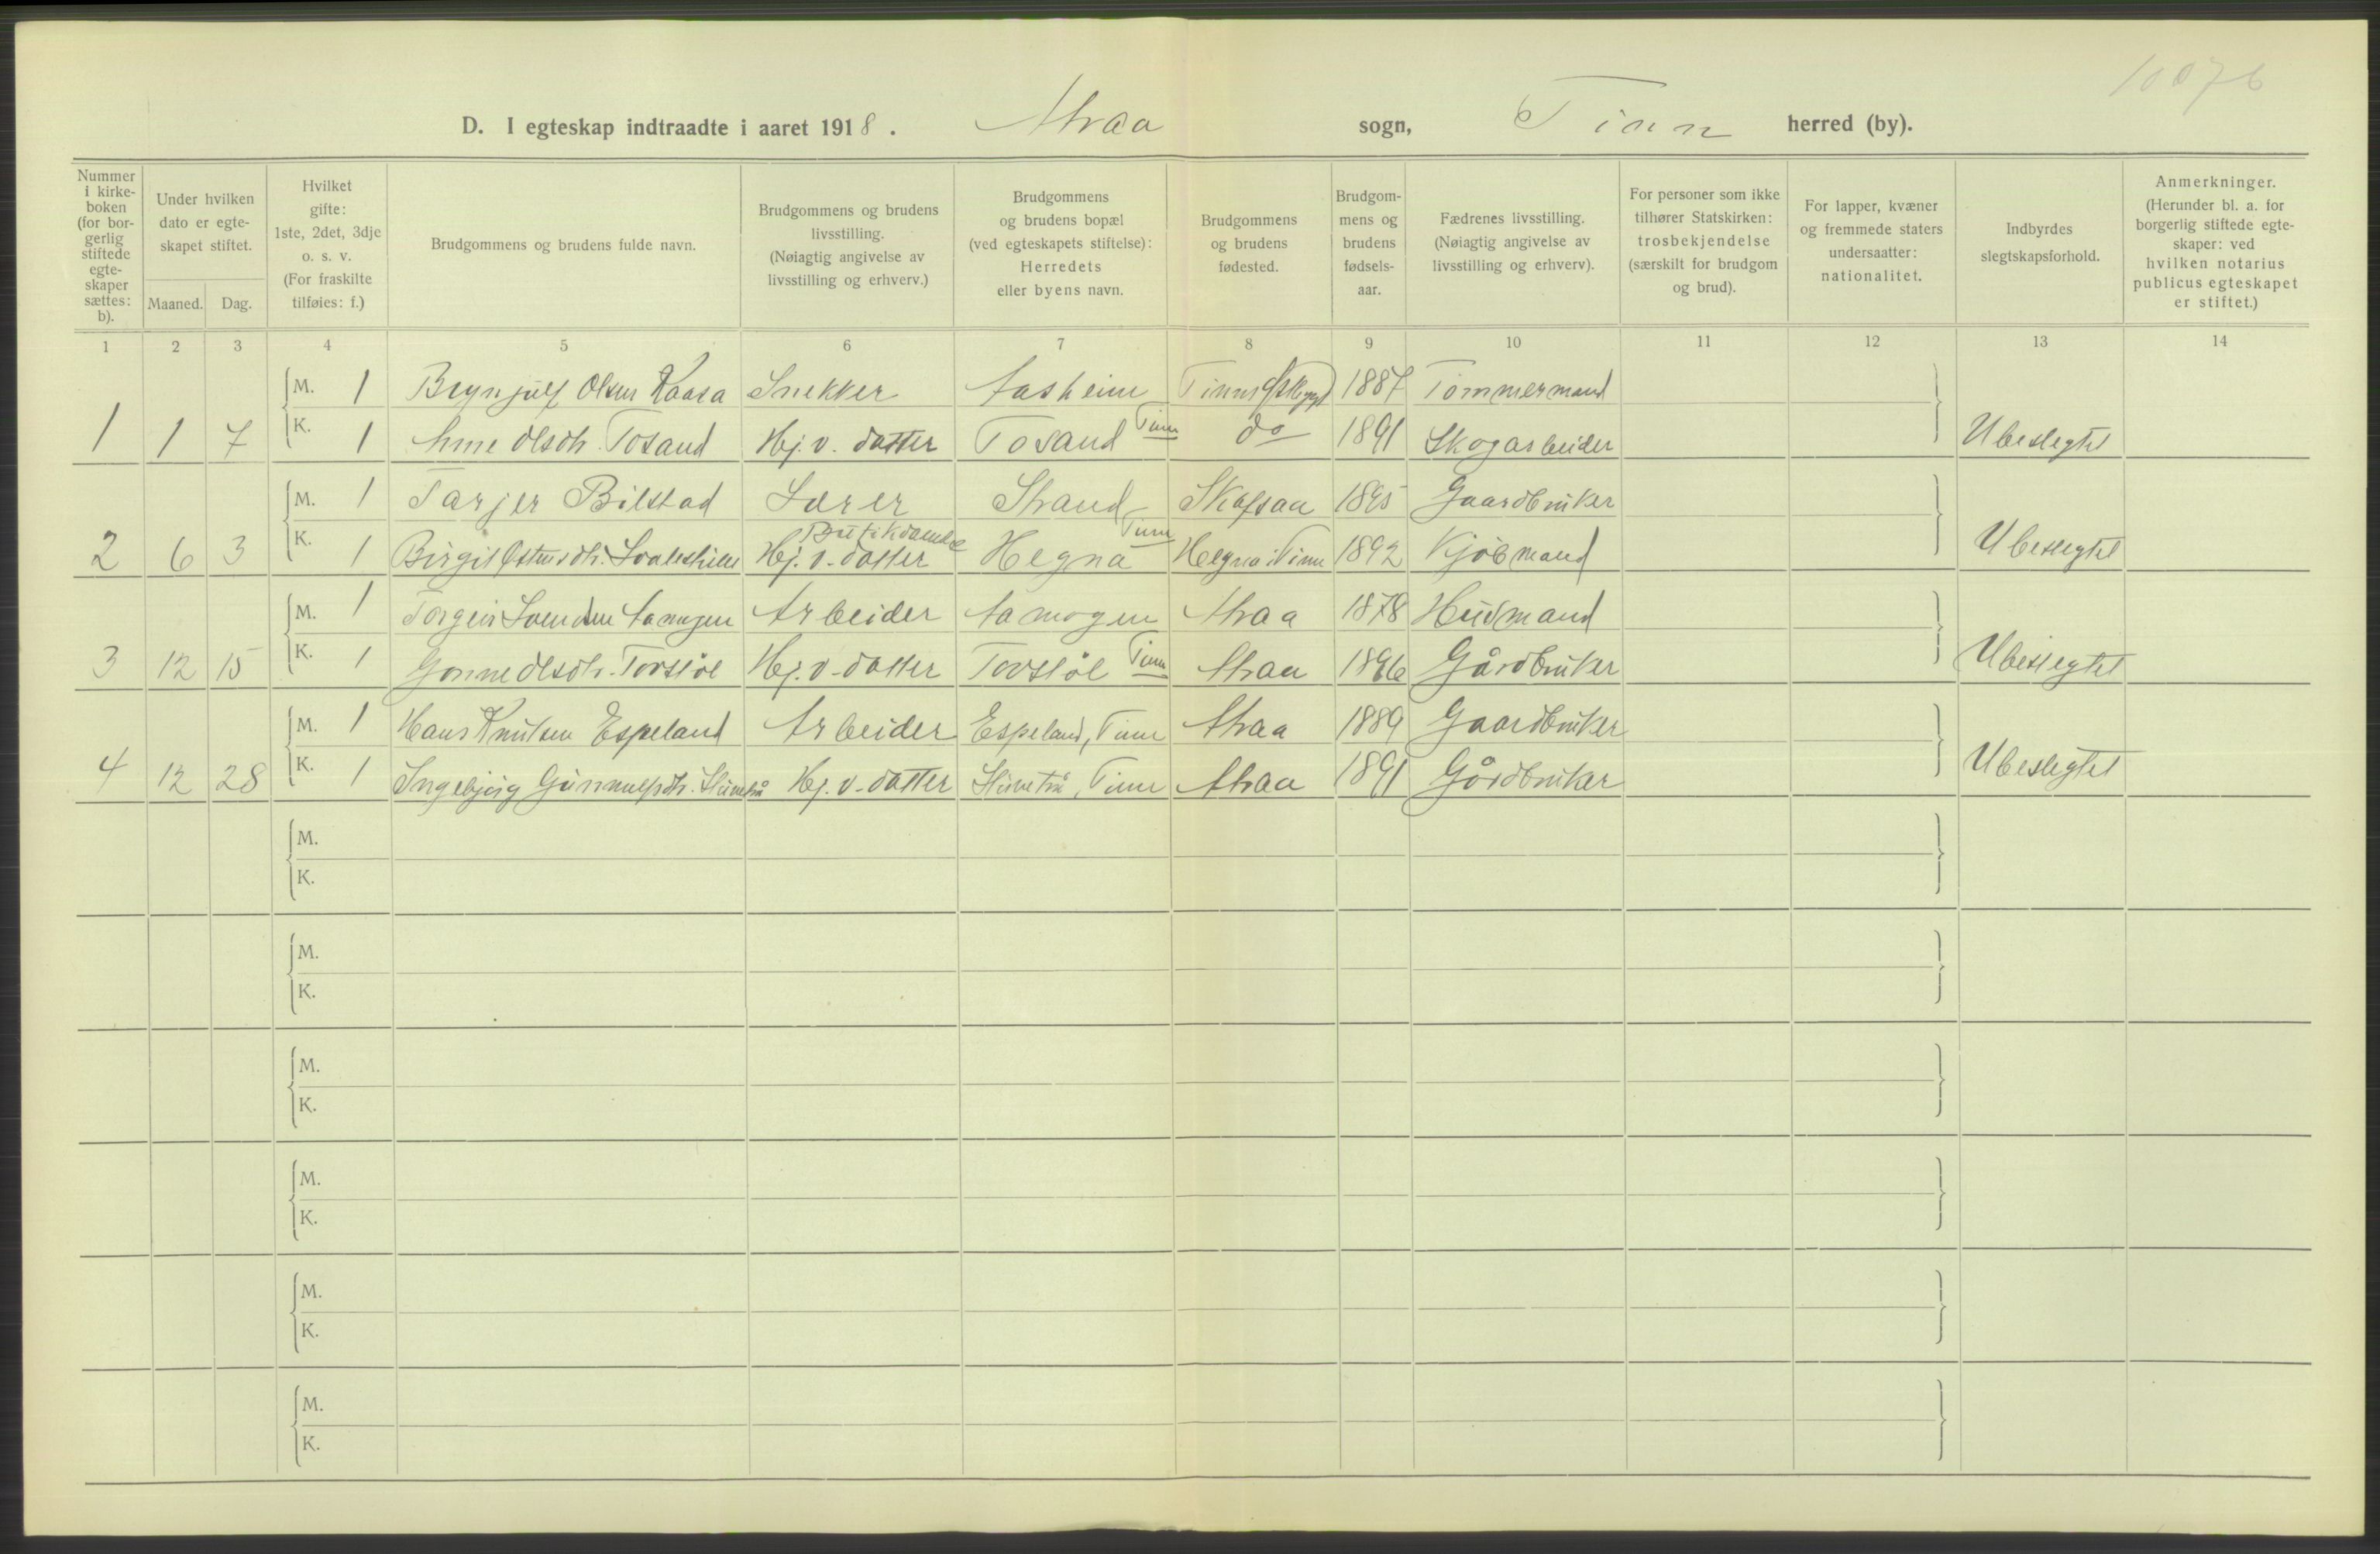 10076
D. I egteskap indtraadte i aaret 1918. Atraa sogn, Tinn herred (by).
Nummer i kirkeboken (for borgerlig stiftede egteskaper sættes: b).
Under hvilken dato er egteskapet stiftet.
Maaned. Dag.
Hvilket gifte: 1ste, 2det, 3dje o. s. v. (For fraskilte tilføies: f.)
Brudgommens og brudens fulde navn.
Brudgommens og brudens livsstilling. (Nøiagtig angivelse av livsstilling og erhverv.)
Brudgommens og brudens bopæl (ved egteskapets stiftelse): Herredets eller byens navn.
Brudgommens og brudens fødested.
Brudgommens og brudens fødselsaar.
Fædrenes livsstilling. (Nøiagtig angivelse av livsstilling og erhverv).
For personer som ikke tilhører Statskirken: trosbekjendelse (særskilt for brudgom og brud).
For lapper, kvæner og fremmede staters undersaatter: nationalitet.
Indbyrdes slegtskapsforhold.
Anmerkninger. (Herunder bl. a. for borgerlig stiftede egteskaper: ved hvilken notarius publicus egteskapet er stiftet.)
1 2 3 4 5 6 7 8 9 10 11 12 13 14
M. 1 Brynjulf Olsen Kaasa Snekker Aasheim Tinns 1887 Tømmermand
1 1 7 K. 1 Anne Olsdtr. Tosand Hj. v. datter Tosand Tinn do 1891 Skogarbeider Ubeslegtet
M. 1 Tarjer Bilstad Lærer Strand Skafsaa 1895 Gaardbruker
Butikdame
2 6 3 K. 1 Birgit Hj. v. datter Hegna Tinn Hegna i Tinn 1892 Kjøbmand Ubeslegtet
M. 1 Torgeir Svendsen Aamogen Arbeider Aamogen Atraa 1878 Husmand
3 12 15 K. 1 Gonne Olsdtr. Torstøl Hj. v. datter Torstøl Tinn Atraa 1896 Gårdbruker Ubeslegtet
M. 1 Hans Knutsen Espeland Arbeider Espeland, Tinn Atraa 1889 Gaardbruker
4 12 28 K. 1 Ingebjørg Gunnulfsdtr. Hj. v. datter Tinn Atraa 1891 Gårdbruker Ubeslegtet
M.
K.
M.
K.
M.
K.
M.
K.
M.
K.
M.
K.